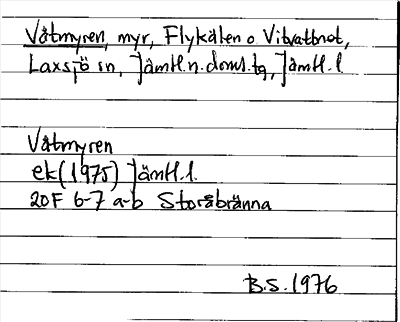 Våtmyren, myr, Flykälen o Vitvattnet,
Laxsjö sn, Jämtl.n.doms.tg, Jämtl.l
Våtmyren
ek(1975) Jämtl.l.
20F 6-7 a-b Storåbränna
B.S. 1976